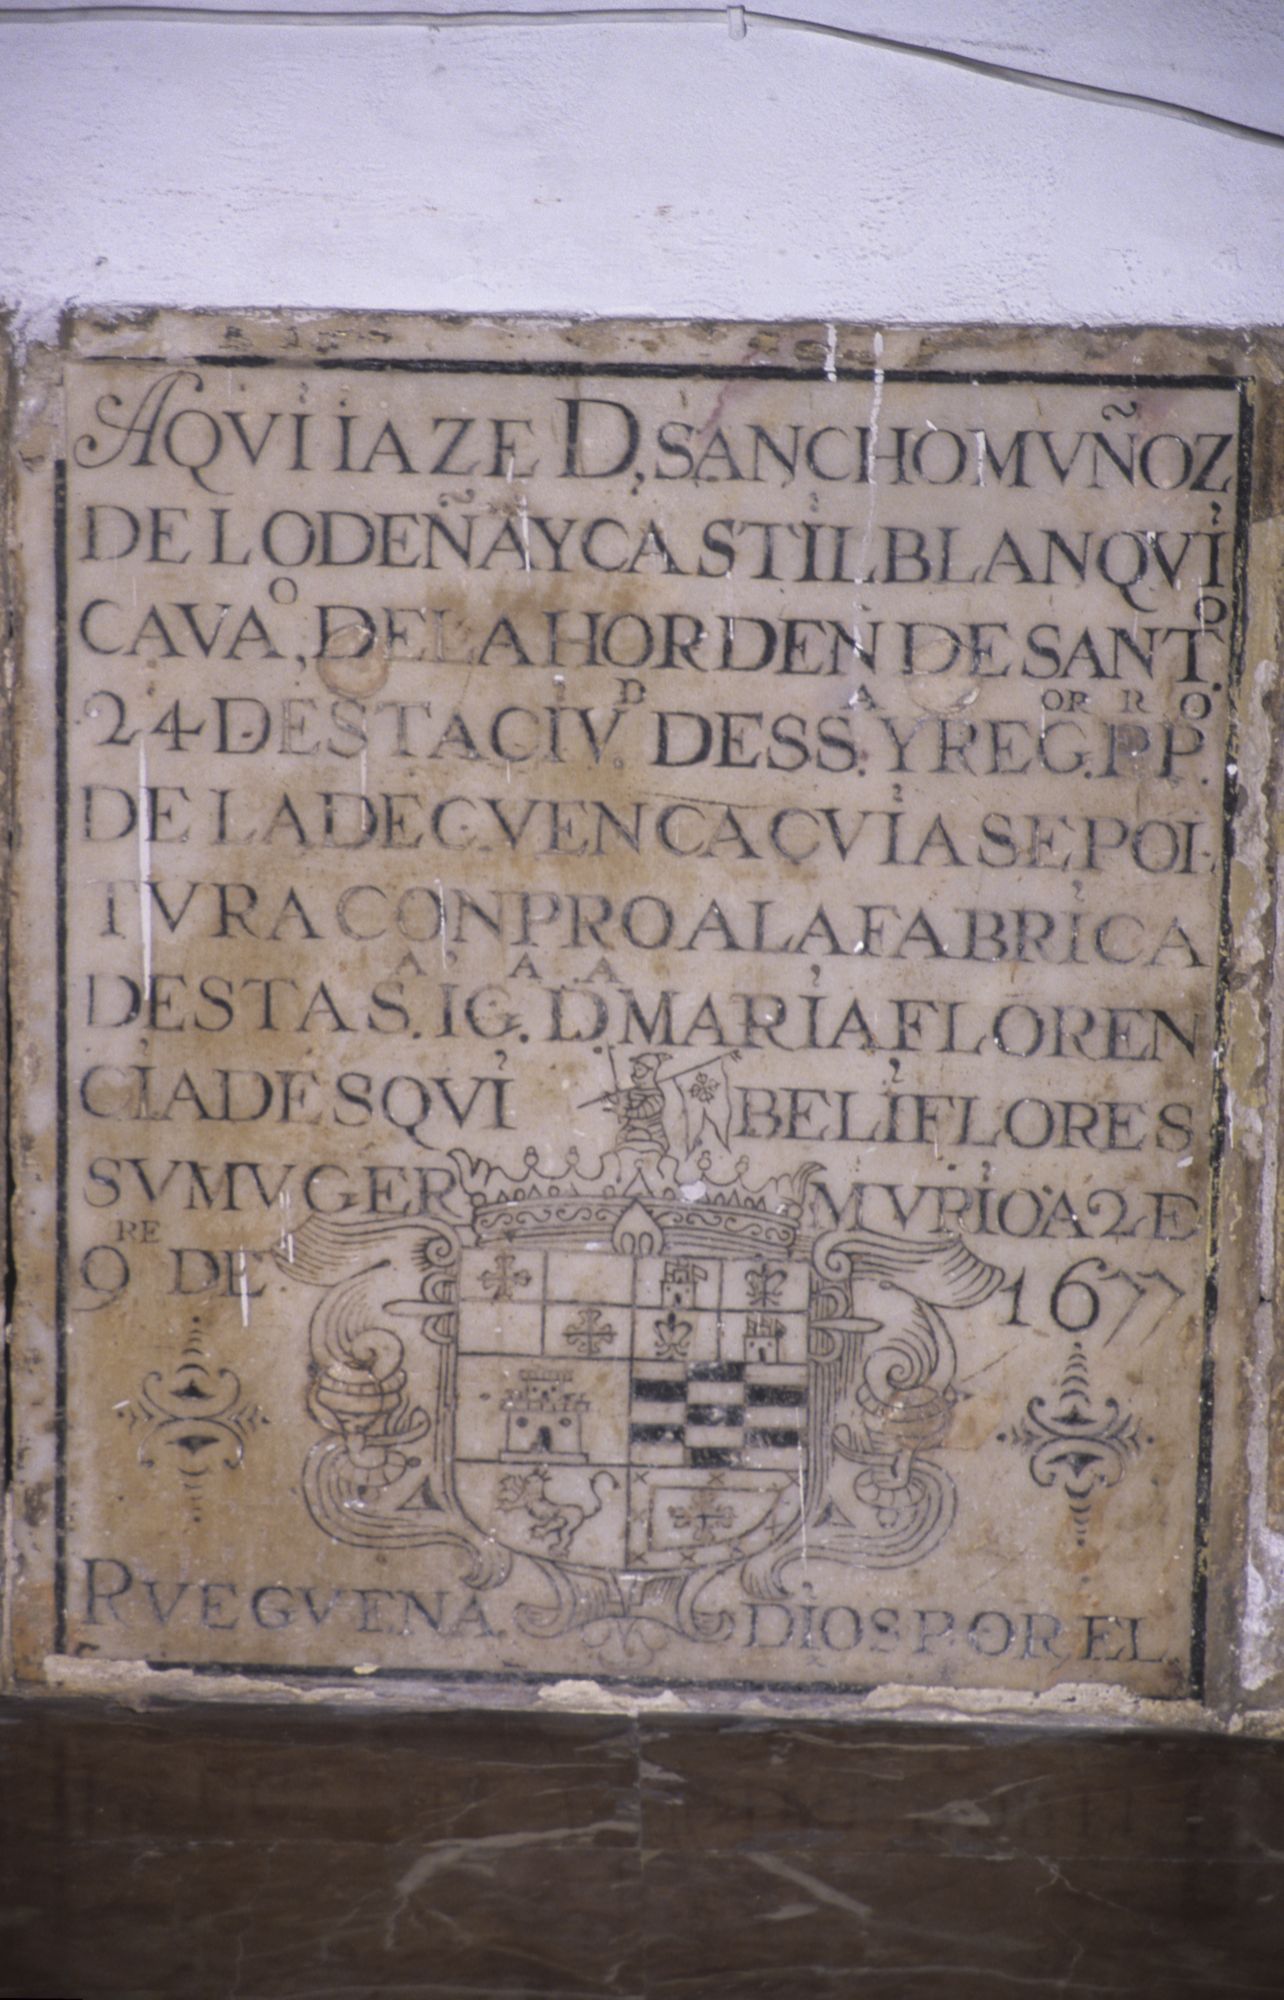 AQVI IAZE D, SANCHO MVÑOZ
DE LODEÑA Y CASTILBLANQVI
CAVAº, DE LA HORDEN DE SANTº.
24 DESTA CIVᴰ. DESSᴬ. Y REGᴼᴿ. PᴿPº.
DE LA DE CVENCA CVIA SEPOL
TVRA CONPRO A LA FABRICA
DESTA Sᴬ. IGᴬ. Dᴬ MARIA FLOREN
CIA DESQVI BELIFLORES
SV MVGER MVRIO A 2 E
9ᴿᴱ DE 1677
RVEGVEN A DIOS POR EL